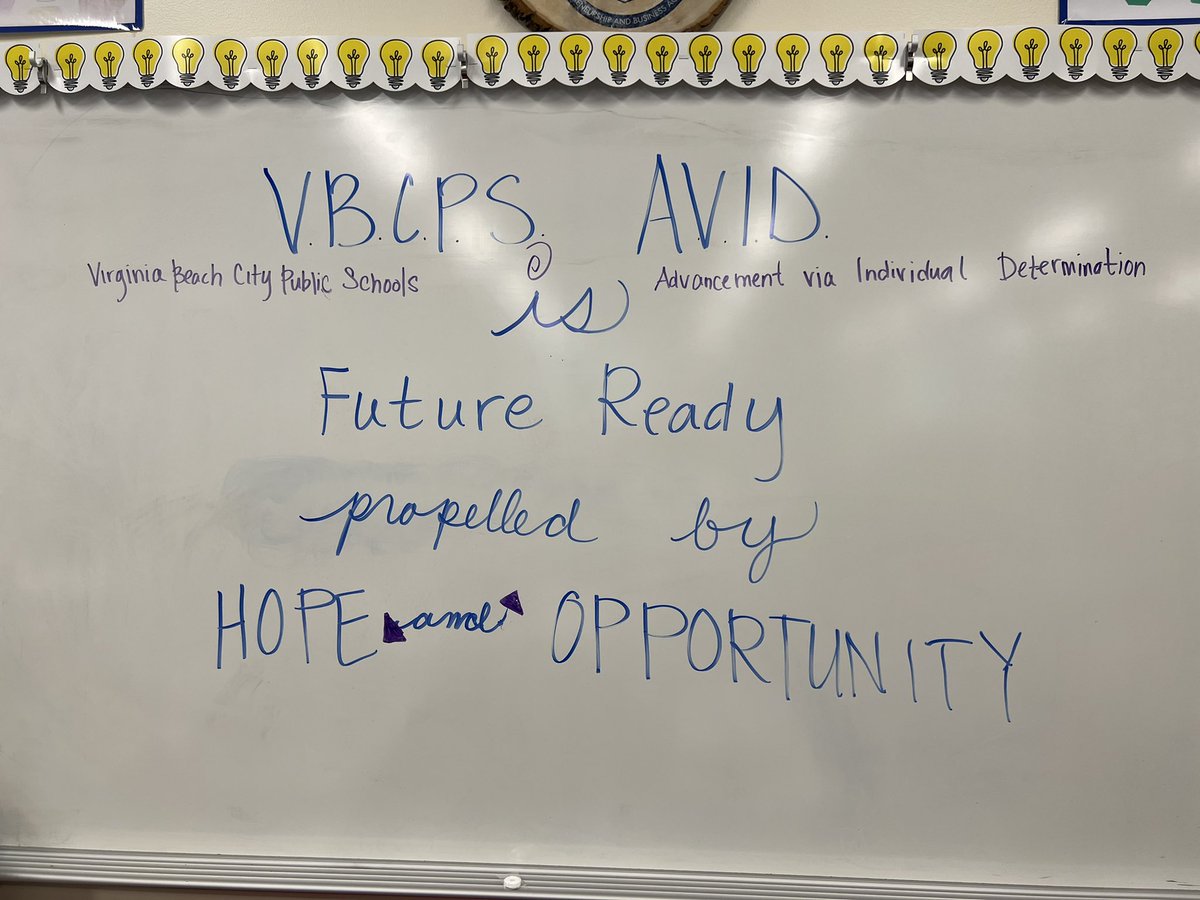 RENEURSHIP AND BUSINESS A
V.B.C.P.S. A.V.I.D.
Virginia Beach City Public Schools Advancement via Individual Determination
is
Future Ready
propelled by
HOPE and OPPORTUNITY